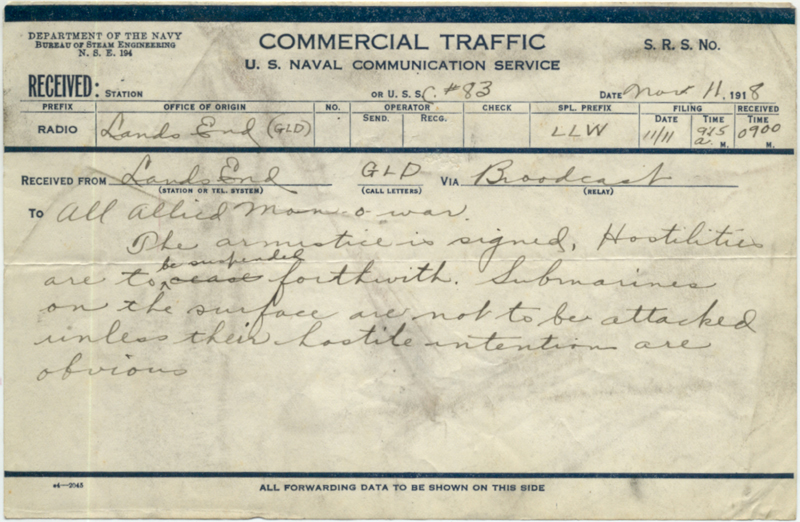 DEPARTMENT OF THE NAVY
BUREAU OF STEAM ENGINEERING
N. S. E. 194
COMMERCIAL TRAFFIC
U. S. NAVAL COMMUNICATION SERVICE
S. R. S. No.
RECEIVED: STATION OR U. S. S. C. #83 DATE Nov 11, 1918
PREFIX OFFICE OF ORIGIN NO. OPERATOR CHECK SPL. PREFIX FILING RECEIVED
SEND. RECG. DATE TIME TIME
RADIO Lands End (GLD) LLW 11/11 915 a. M. 0900 M.
RECEIVED FROM Lands End GLD VIA Broadcast
(STATION OR TEL. SYSTEM) (CALL LETTERS) (RELAY)
TO All Allied Man-o-war.
The armistice is signed, Hostilities
be suspended
are to cease forthwith. Submarines
on the surface are not to be attacked
unless their hostile intentions are
obvious
ALL FORWARDING DATA TO BE SHOWN ON THIS SIDE